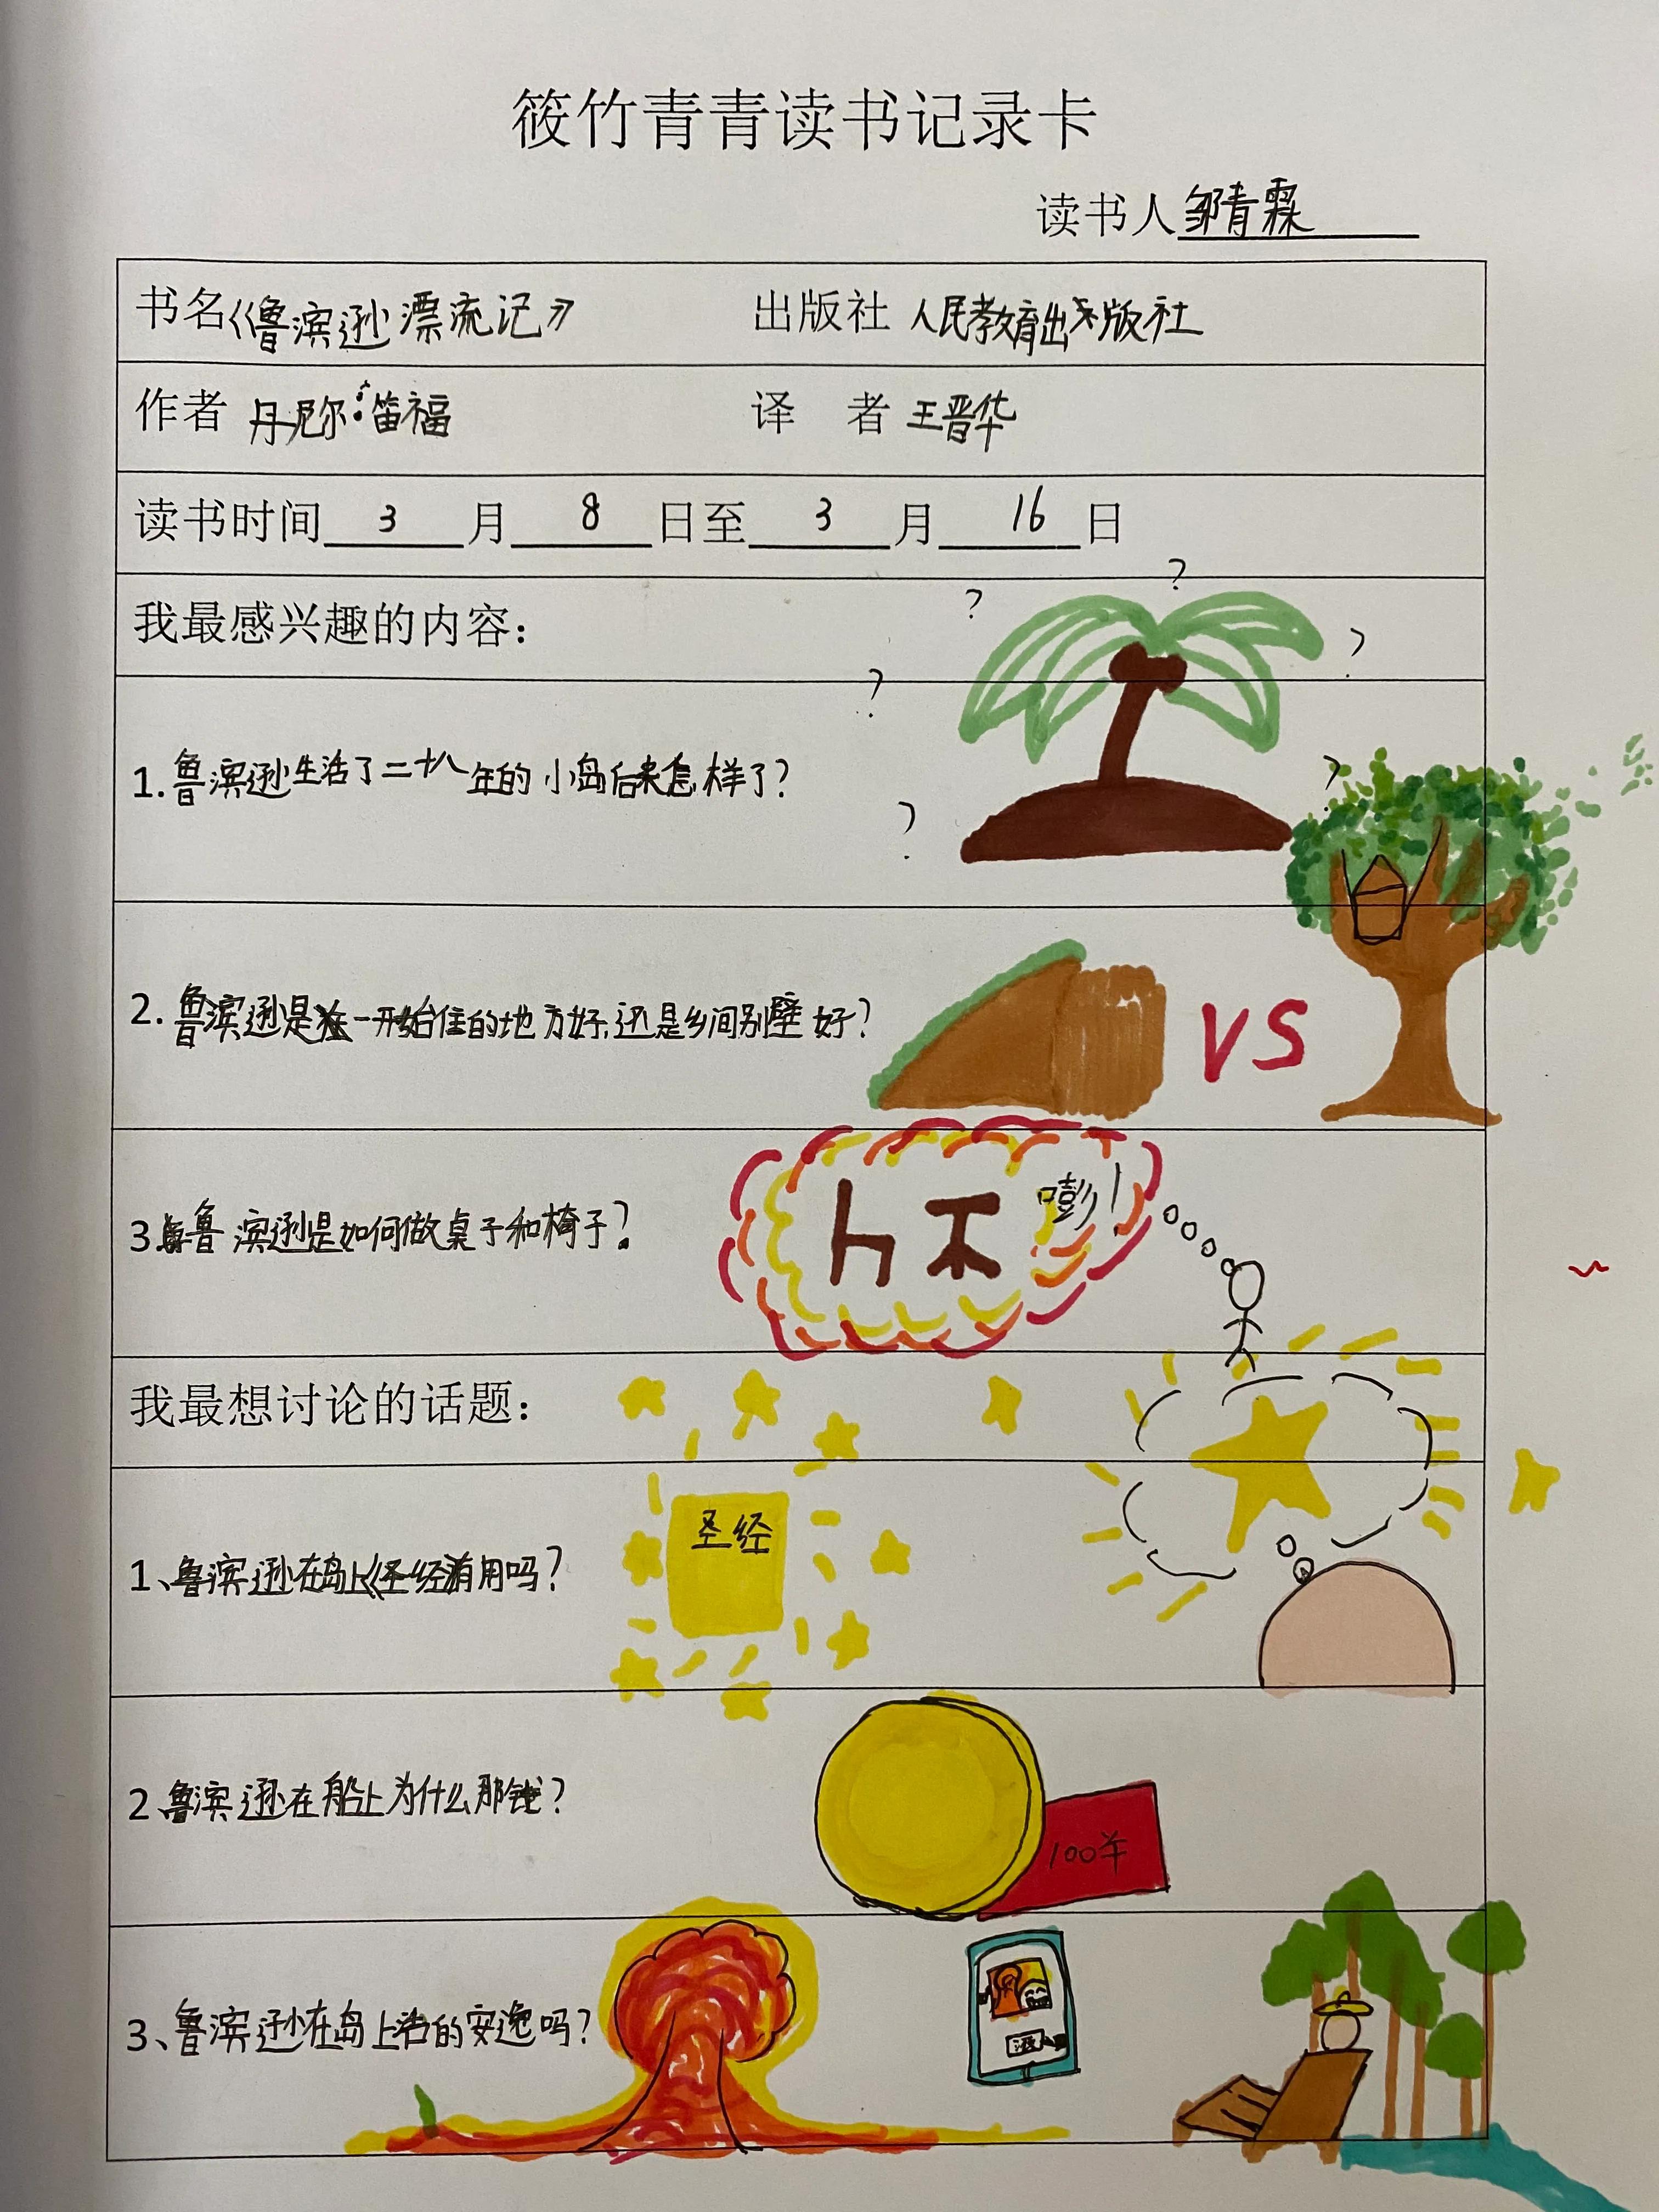 筱竹青青读书记录卡
读书人邹青霖
书名《鲁滨逊漂流记》 出版社 人民教育出版社
作者 丹尼尔·笛福 译 者 王晋华
读书时间 3 月 8 日至 3 月 16 日
我最感兴趣的内容：
? ? ? ? ? ?
1.鲁滨逊生活了二十八年的小岛后来怎样了?
2.鲁滨逊是一开始住的地方好,还是乡间别壁好?
VS
3.鲁滨逊是如何做桌子和椅子?
嘭!
我最想讨论的话题：
圣经
1、鲁滨逊在岛上《圣经》有用吗?
2.鲁滨逊在船上为什么那钱?
100羊
3、鲁滨逊在岛上活的安逸吗?